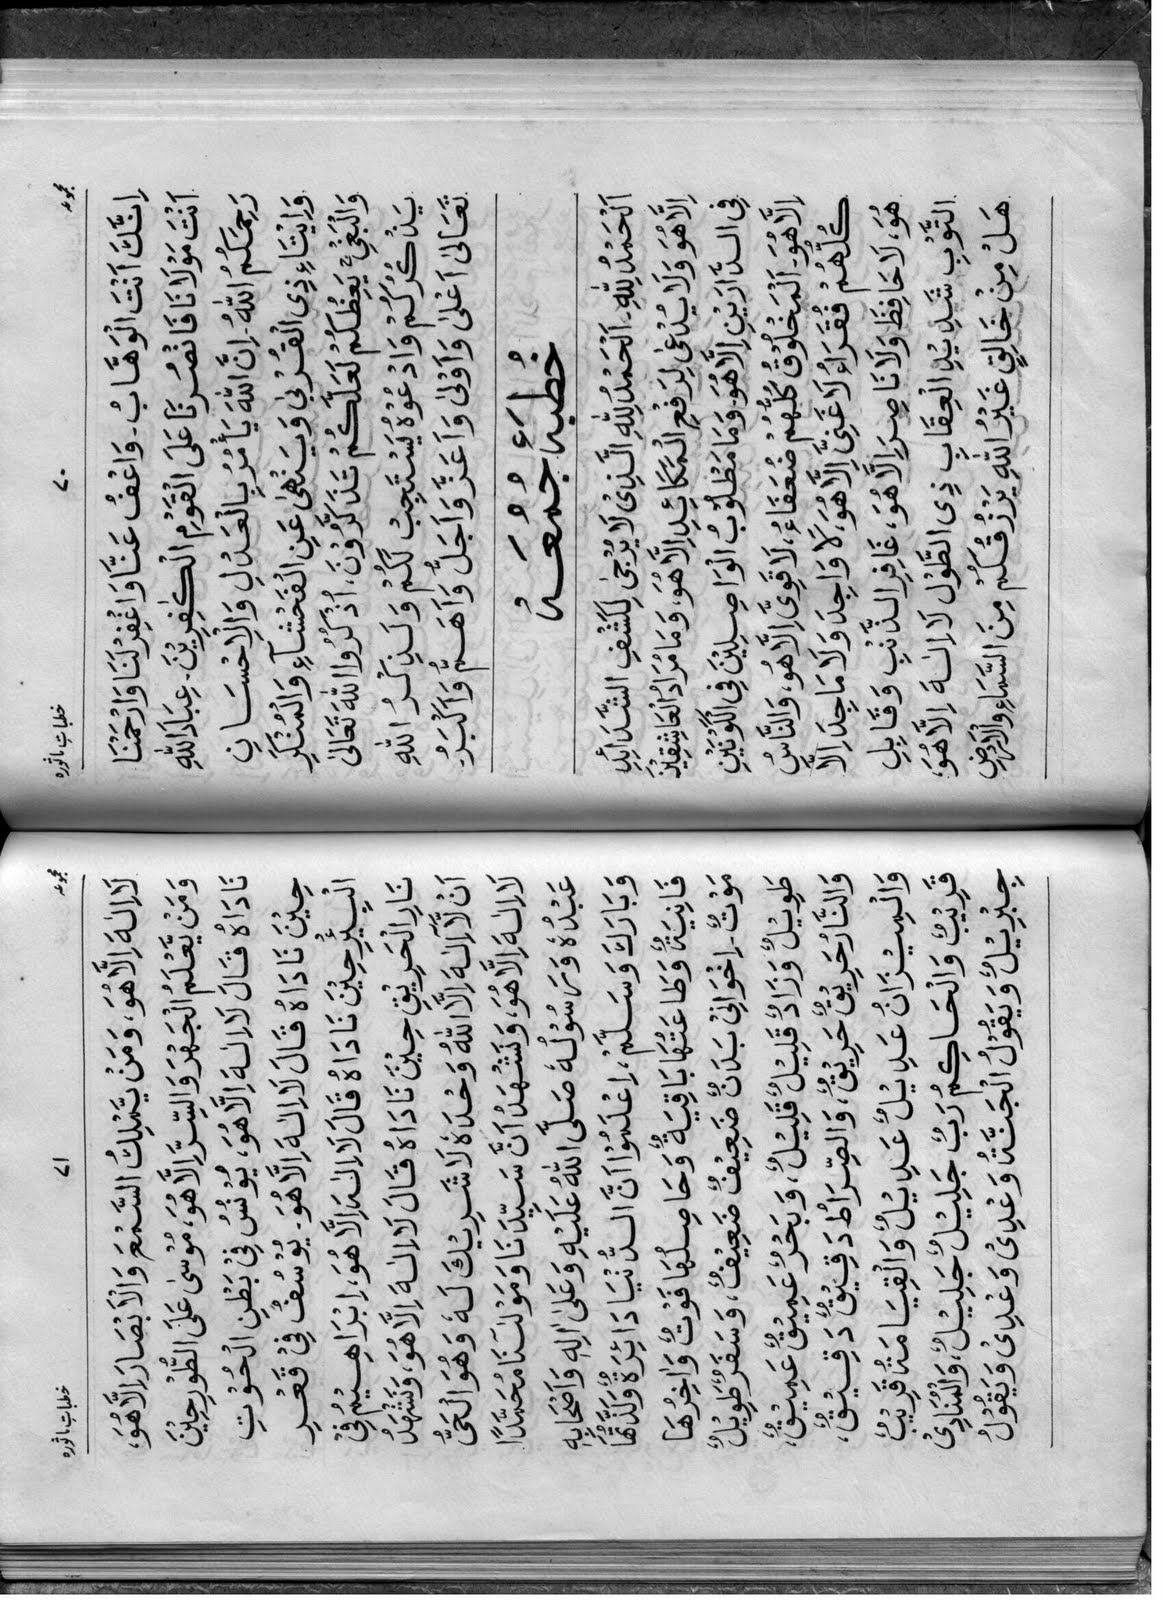 مجموعہ ۷۰ خطباتِ ماثورہ
اِنَّكَ اَنْتَ الْوَهَّابُ۔ وَاعْفُ عَنَّا وَاغْفِرْلَنَا وَارْحَمْنَا
اَنْتَ مَوْلَانَا فَانْصُرْنَا عَلَى الْقَوْمِ الْكٰفِرِيْنَ۔ عِبَادَ اللّٰهِ
رَحِمَكُمُ اللّٰهُ۔ اِنَّ اللّٰهَ يَأْمُرُ بِالْعَدْلِ وَالْاِحْسَانِ
وَاِيْتَاءِ ذِى الْقُرْبٰى وَيَنْهٰى عَنِ الْفَحْشَاءِ وَالْمُنْكَرِ
وَالْبَغْيِ يَعِظُكُمْ لَعَلَّكُمْ تَذَكَّرُوْنَ، اُذْكُرُوا اللّٰهَ تَعَالٰى
يَذْكُرْكُمْ وَادْعُوْهُ يَسْتَجِبْ لَكُمْ وَلَذِكْرُ اللّٰهِ
تَعَالٰى اَعْلٰى وَاَوْلٰى وَاَعَزُّ وَاَجَلُّ وَاَهَمُّ وَاَكْبَرُ۔
خُطْبَہ اُولٰی جُمُعَہ
اَلْحَمْدُ لِلّٰهِ۔ اَلْحَمْدُ لِلّٰهِ الَّذِىْ لَا يُرْجٰى لِكَشْفِ الشَّدَائِدِ
اِلَّا هُوَ وَلَا يُدْعٰى لِرَفْعِ الْمَكَائِدِ اِلَّا هُوَ، وَمَا مُرَادُ الْعَاشِقِيْنَ
فِى الدَّارَيْنِ اِلَّا هُوَ۔ وَمَا مَطْلُوْبُ الْوَاصِلِيْنَ فِى الْكَوْنَيْنِ
اِلَّا هُوَ۔ اَلْمَخْلُوْقُ كُلُّهُمْ ضُعَفَاءُ، لَا قَوِىَّ اِلَّا هُوَ، وَالنَّاسُ
كُلُّهُمْ فُقَرَاءُ لَا غَنِىَّ اِلَّا هُوَ، لَا وَاجِدَ وَلَا مَاجِدَ اِلَّا
هُوَ، لَا حَافِظَ وَلَا نَاصِرَ اِلَّا هُوَ، غَافِرِ الذَّنْبِ وَقَابِلِ
التَّوْبِ شَدِيْدِ الْعِقَابِ ذِى الطَّوْلِ لَا اِلٰهَ اِلَّا هُوَ،
هَلْ مِنْ خَالِقٍ غَيْرُ اللّٰهِ يَرْزُقُكُمْ مِنَ السَّمَاءِ وَالْاَرْضِ
مجموعہ ۷۱ خطباتِ ماثورہ
لَا اِلٰهَ اِلَّا هُوَ، وَمَنْ يَّمْلِكُ السَّمْعَ وَالْاَبْصَارَ اِلَّا هُوَ،
وَمَنْ يَّعْلَمُ الْجَهْرَ وَالسِّرَّ اِلَّا هُوَ، مُوْسٰى عَلَى الطُّوْرِ حِيْنَ
نَادَاهُ قَالَ لَا اِلٰهَ اِلَّا هُوَ، يُوْنُسُ فِىْ بَطْنِ الْحُوْتِ
حِيْنَ نَادَاهُ قَالَ لَا اِلٰهَ اِلَّا هُوَ۔ يُوْسُفُ فِىْ قَعْرِ
الْبِئْرِ حِيْنَ نَادَاهُ قَالَ لَا اِلٰهَ اِلَّا هُوَ، اِبْرَاهِيْمُ فِىْ
نَارِ الْحَرِيْقِ حِيْنَ نَادَاهُ قَالَ لَا اِلٰهَ اِلَّا هُوَ، وَنَشْهَدُ
اَنْ لَّا اِلٰهَ اِلَّا اللّٰهُ وَحْدَهٗ لَا شَرِيْكَ لَهٗ وَهُوَ الْحَىُّ
لَا اِلٰهَ اِلَّا هُوَ، وَنَشْهَدُ اَنَّ سَيِّدَنَا وَمَوْلٰنَا مُحَمَّدًا
عَبْدُهٗ وَرَسُوْلُهٗ صَلَّى اللّٰهُ عَلَيْهِ وَعَلٰى اٰلِهٖ وَاَصْحَابِهٖ
وَبَارَكَ وَسَلَّمْ، اِعْلَمُوْا اَنَّ الدُّنْيَا دَائِرَةٌ وَلَذَّتُهَا
فَانِيَةٌ وَطَاعَتُهَا بَاقِيَةٌ وَحَاصِلُهَا فَوْتٌ وَاٰخِرُهَا
مَوْتٌ۔ اِخْوَانِىْ بَدَنٌ ضَعِيْفٌ ضَعِيْفٌ، وَسَفَرٌ طَوِيْلٌ
طَوِيْلٌ وَزَادٌ قَلِيْلٌ قَلِيْلٌ، وَبَحْرٌ عَمِيْقٌ عَمِيْقٌ،
وَالنَّارُ حَرِيْقٌ حَرِيْقٌ، وَالصِّرَاطُ دَقِيْقٌ دَقِيْقٌ،
وَالْمِيْزَانُ عَدِيْلٌ عَدِيْلٌ وَالْقِيَامَةُ قَرِيْبٌ
قَرِيْبٌ وَالْحَاكِمُ رَبٌّ جَلِيْلٌ جَلِيْلٌ، وَالْمُنَادِىْ
جِبْرِيْلُ وَيَقُوْلُ الْجَنَّةُ وَعْدِىْ وَعْدِىْ وَيَقُوْلُ